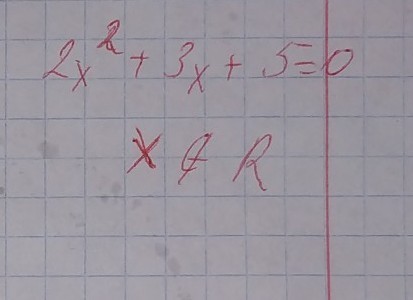 2x² + 3x + 5 = 0
x ∉ R